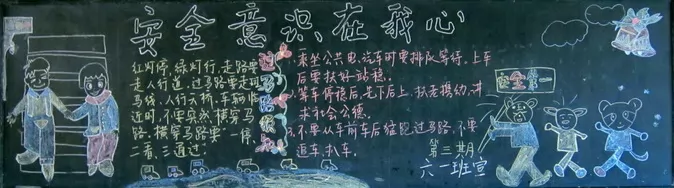 安全意识在我心
红灯停,绿灯行,走路要
走人行道,过马路要走斑
马线、人行天桥,车辆临
近时,不要突然横穿马
路,横穿马路要一停,
二看,三通过。
1.乘坐公共电、汽车时要排队等待,上车
后要扶好站稳。
2.等车停稳后,先下后上,扶老携幼,讲
求社会公德。
3.不要从车前车后猛跑过马路,不要
追车、扒车。
安全第一
第三期
六一班宣